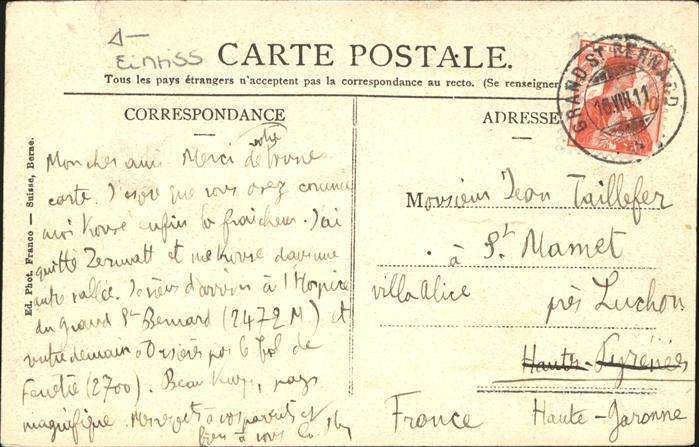 EintISS
CARTE POSTALE.
Tous les pays étrangers n'acceptent pas la correspondance au recto. (Se renseigner
CORRESPONDANCE
ADRESSE
GRAND-ST-BERNARD
16.VIII.11
Ed. Phot. Franco — Suisse, Berne.
Mon cher ami Merci de votre bonne
carte. J'espère que vous avez comme
moi trouvé enfin la fraîcheur. J'ai
quitté Zermatt et me trouve dans une
autre vallée. Je viens d'arriver à l'Hospice
du Grand St Bernard (2472 M) et
demain à Orsières par le Col de
Fenêtre (2700). Beau temps, pays
magnifique. Mes respects à vos parents et
bien à vous
Monsieur Jean Taillefer
à St Mamet
villa Alice près Luchon
Hautes-Pyrénées
France Haute-Garonne